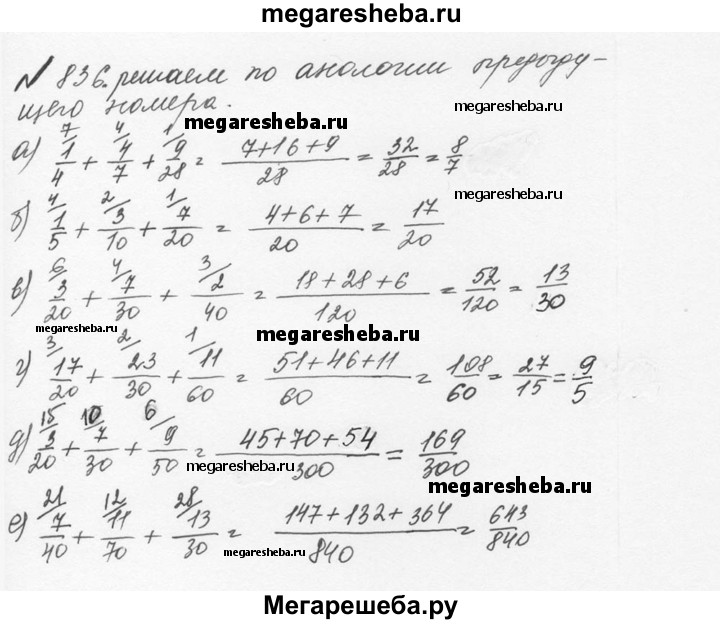 megaresheba.ru
№ 836. решаем по анологии предыду-
щего номера.
megaresheba.ru
megaresheba.ru
7/ 4/ 1/
а) 1/4 + 4/7 + 9/28 = (7+16+9)/28 = 32/28 = 8/7
megaresheba.ru
4/ 2/ 1/
б) 1/5 + 3/10 + 7/20 = (4+6+7)/20 = 17/20
6/ 4/ 3/
в) 3/20 + 7/30 + 2/40 = (18+28+6)/120 = 52/120 = 13/30
megaresheba.ru
megaresheba.ru
3/ 2/ 1/
г) 17/20 + 23/30 + 11/60 = (51+46+11)/60 = 108/60 = 27/15 = 9/5
15/ 10/ 6/
д) 3/20 + 7/30 + 9/50 = (45+70+54)/300 = 169/300
megaresheba.ru
megaresheba.ru
21/ 12/ 28/
е) 7/40 + 11/70 + 13/30 = (147+132+364)/840 = 643/840
megaresheba.ru
Мегарешеба.ру